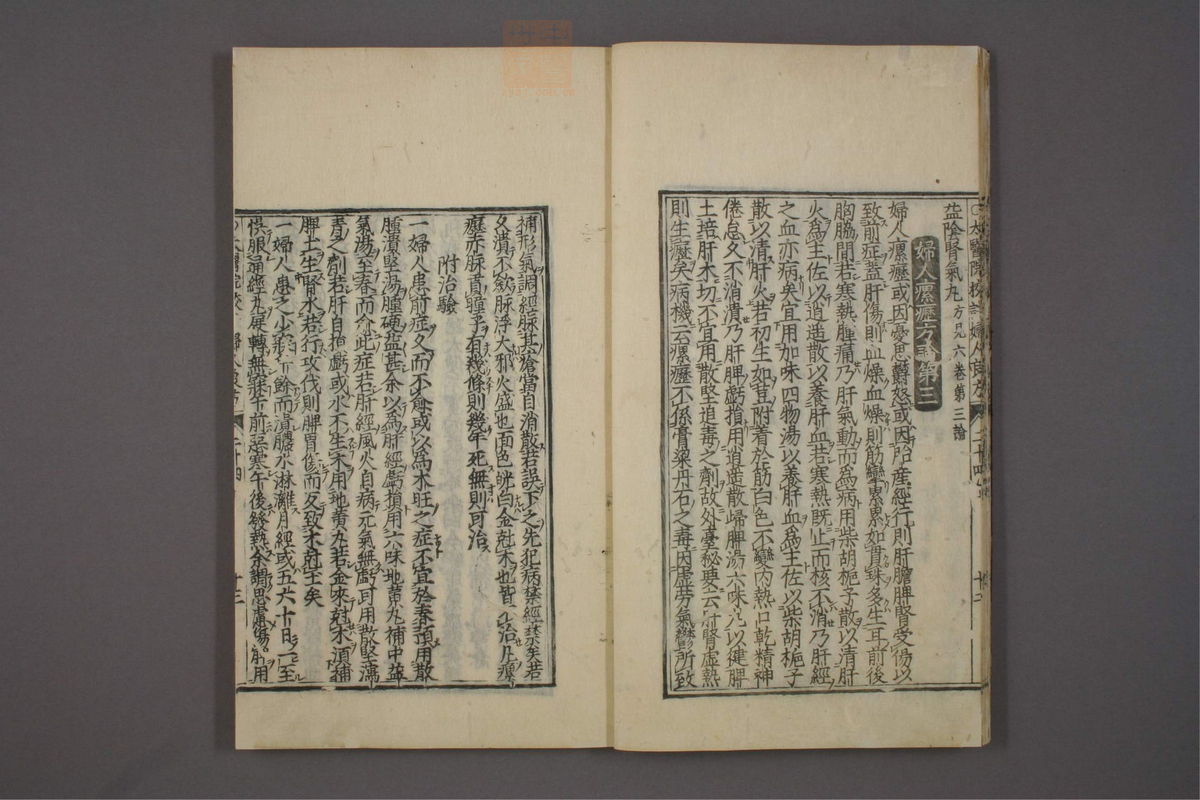 太醫院校註婦人良方 二十四 廿二
益陰腎氣丸 方見六卷第三論
婦人瘰癧方論第三
婦人瘰癧或因憂思鬱怒或因胎産經行則肝膽脾腎受傷以
致前症蓋肝傷則血燥血燥則筋攣累累如貫珠多生耳前後
胸脇間若寒熱腫痛乃肝氣動而爲病用柴胡梔子散以清肝
火爲主佐以逍遥散以養肝血若寒熱既止而核不消乃肝經
之血亦病矣宜用加味四物湯以養肝血爲主佐以柴胡梔子
散以清肝火若初生如荳附着於筋白色不變内熱口乾精神
倦怠久不消潰乃肝脾虧損用逍遥散歸脾湯六味丸以健脾
土培肝木切不宜用散堅追毒之劑故外臺秘要云肝腎虛熱
則生癧矣病機云瘰癧不係膏粱丹石之毒因虛勞氣鬱所致
補形氣調經脉其瘡當自消散若誤下之先犯病禁經禁矣若
久潰不歛脉浮大邪火盛也面色㿠白金尅木也皆不治凡瘰
癧赤脉貫瞳子有幾條則幾年死無則可治
附治驗
一婦人患前症久而不愈或以爲木旺之症不宜於春預用散
腫潰堅湯腫硬益甚余以爲肝經虧損用六味地黄丸補中益
氣湯至春而愈此症若肝經風火自病元氣無虧可用散堅瀉
青之劑若肝自損虧或水不生木用地黄丸若金來尅木須補
脾土生腎水若行攻伐則脾胃傷而反致木尅土矣
一婦人患之少寐年餘而潰膿水淋漓月經或五六十日一至
誤服通經丸展轉無寐午前惡寒午後發熱余謂思慮傷脾用
太醫院校 婦人良方 二十四 廿三